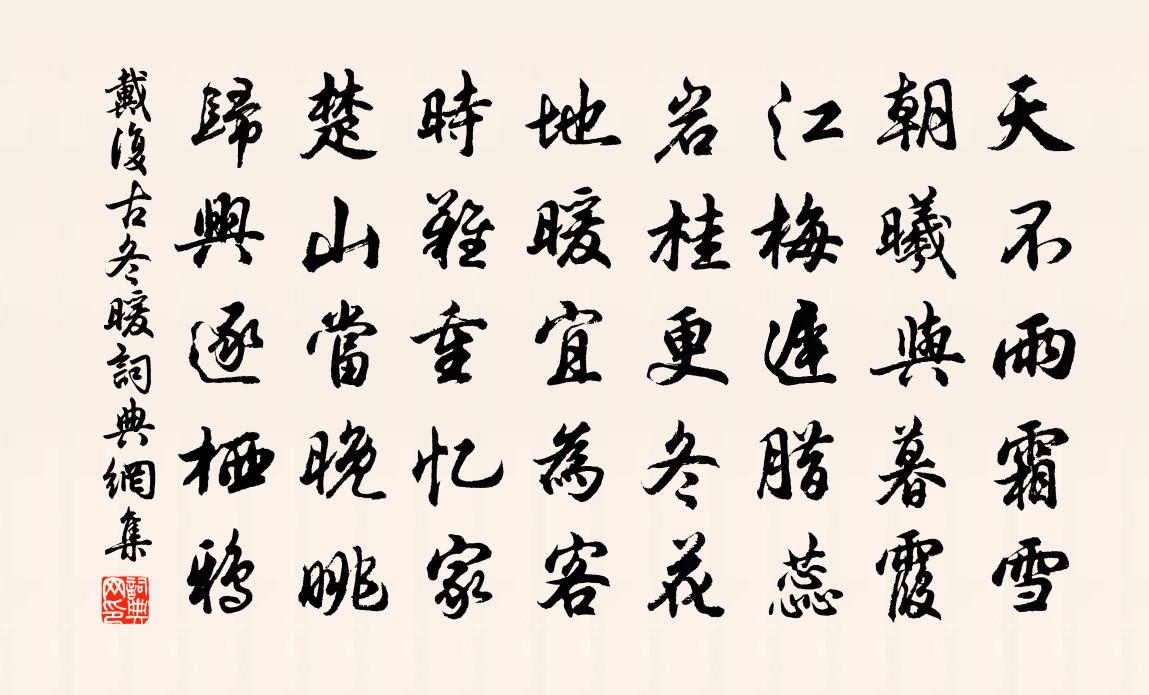 天不雨霜雪
朝曦與暮霞
江梅遲腊蕊
岩桂更冬花
地暖宜為客
時難重忆家
楚山當晚眺
歸興逐栖鴉
戴復古冬暖詞典網集
詞典网印